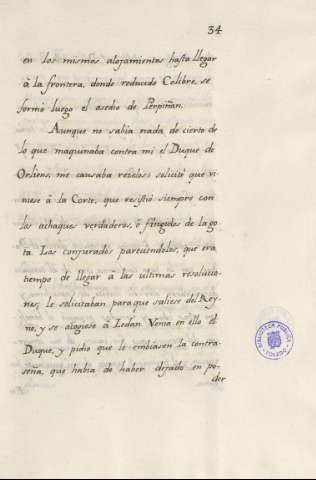 34
en los mismos alojamientos hasta llegar
à la frontera, donde reducido Colibre, se
formó luego el asedio de Perpiñan.
Aunque no sabia nada de cierto de
lo que maquinaba contra mi el Duque de
Orliens, me causaba rezelos: solicité que vi
niese à la Corte, que resistió siempre con
los achaques verdaderos, ò fingidos de la go
ta. Los conjurados pareciendoles, que era
tiempo de llegar à las ultimas resolucio
nes, le solicitaban para que saliese del Rey
no, y se acogiese à Sedan. Venia en ello el
Duque, y pidio que le embiasen la contra
seña, que habia de haber dejado en po
der
BIBLIOTECA PUBLICA
TOLEDO